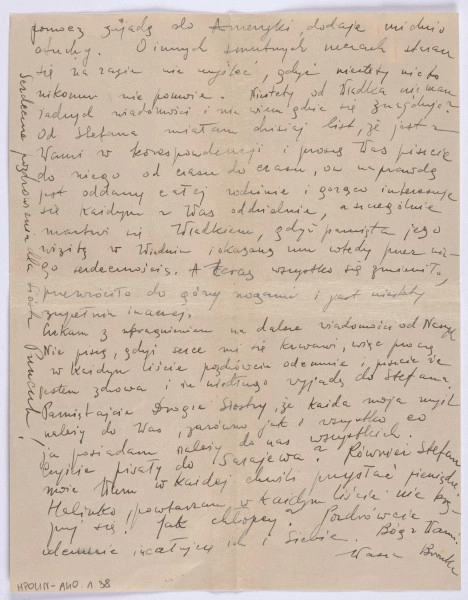 pomocą zjadę do Ameryki, dodaje mi dużo
otuchy. O innych smutnych rzeczach staram
się na razie nie myśleć, gdyż niestety nic to
nikomu nie pomoże. Niestety od Władka nie mam
żadnych wiadomości i nie wiem gdzie się znajduje?
Od Stefana miałam dzisiaj list, że jest z
Wami w korespondencji i proszę Was piszcie
do niego od czasu do czasu, on naprawdę
jest oddany całej rodzinie i gorąco interesuje
się każdym z Was oddzielnie, a szczególnie
martwi się Władkiem, gdyż pamięta jego
wizytę w Wiedniu i okazaną mu wtedy przez nie-
go serdecznością. A teraz wszystko się zmieniło,
przewróciło do góry nogami i jest niestety
zupełnie inaczej.
Czekam z upragnieniem na dalsze wiadomości od
Nie piszę, gdyż serce mi się krwawi, więc proszę
w każdym liście pozdrówcie odemnie i piszcie że
jestem zdrowa i że niedługo wyjadę do Stefana.
Pamiętajcie Drogie Siostry, że każda moja myśl
należy do Was, zarówno jak i wszystko co
ja posiadam należy do nas wszystkich.
Czyście pisały do Sarajewa? Również Stefan
może Wam w każdej chwili przysłać pieniądze.
Halinko powtarzam w każdym liście nie
się. Jak chłopcy? Pozdrówcie
odemnie i całuję ich i Siebie. Bóg z Wami.
Wasza Bronka
Serdeczne pozdrowienia dla
MPOLIN-A40.1.38